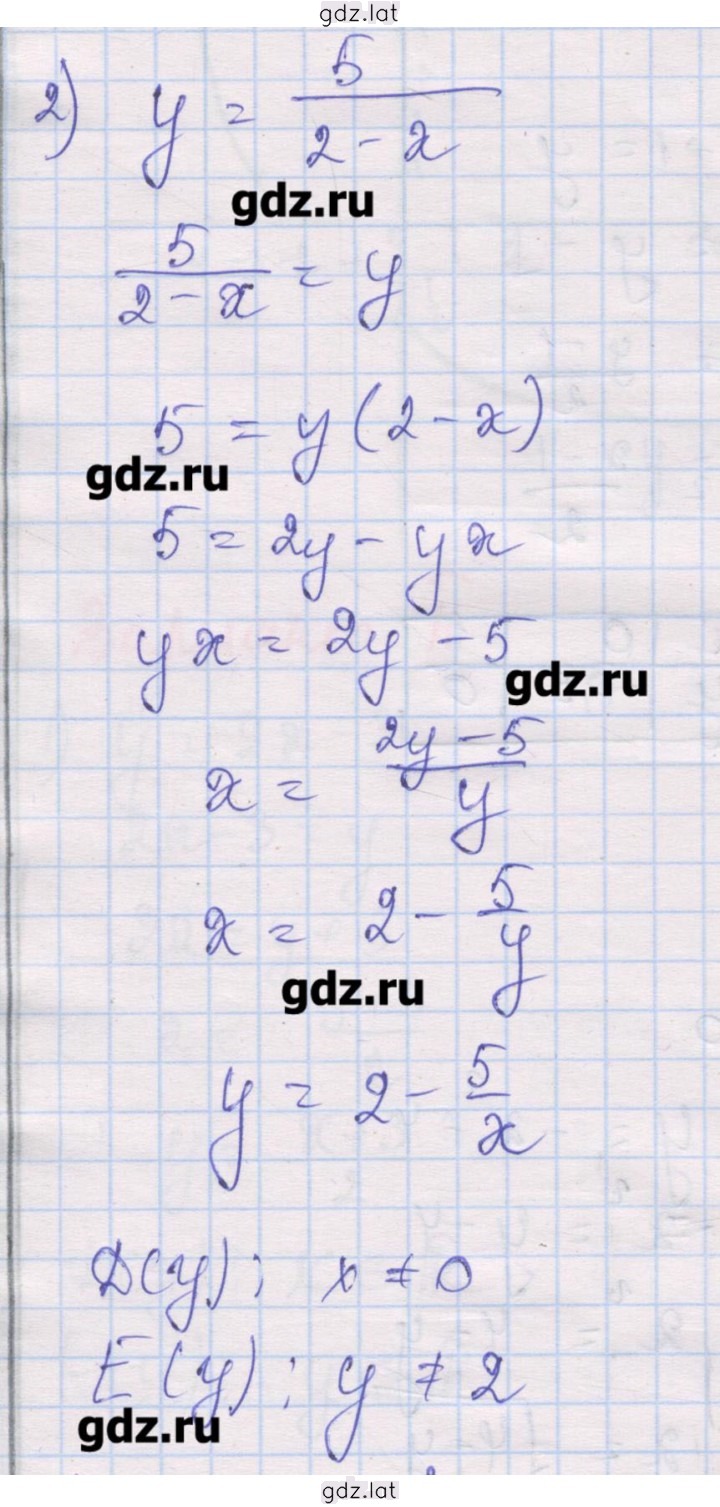 gdz.lat
2) y = 5/(2 - x)
gdz.ru
5/(2 - x) = y
5 = y(2 - x)
gdz.ru
5 = 2y - yx
yx = 2y - 5
gdz.ru
x = (2y - 5)/y
x = 2 - 5/y
gdz.ru
y = 2 - 5/x
D(y): x ≠ 0
E(y): y ≠ 2
gdz.ru
gdz.lat